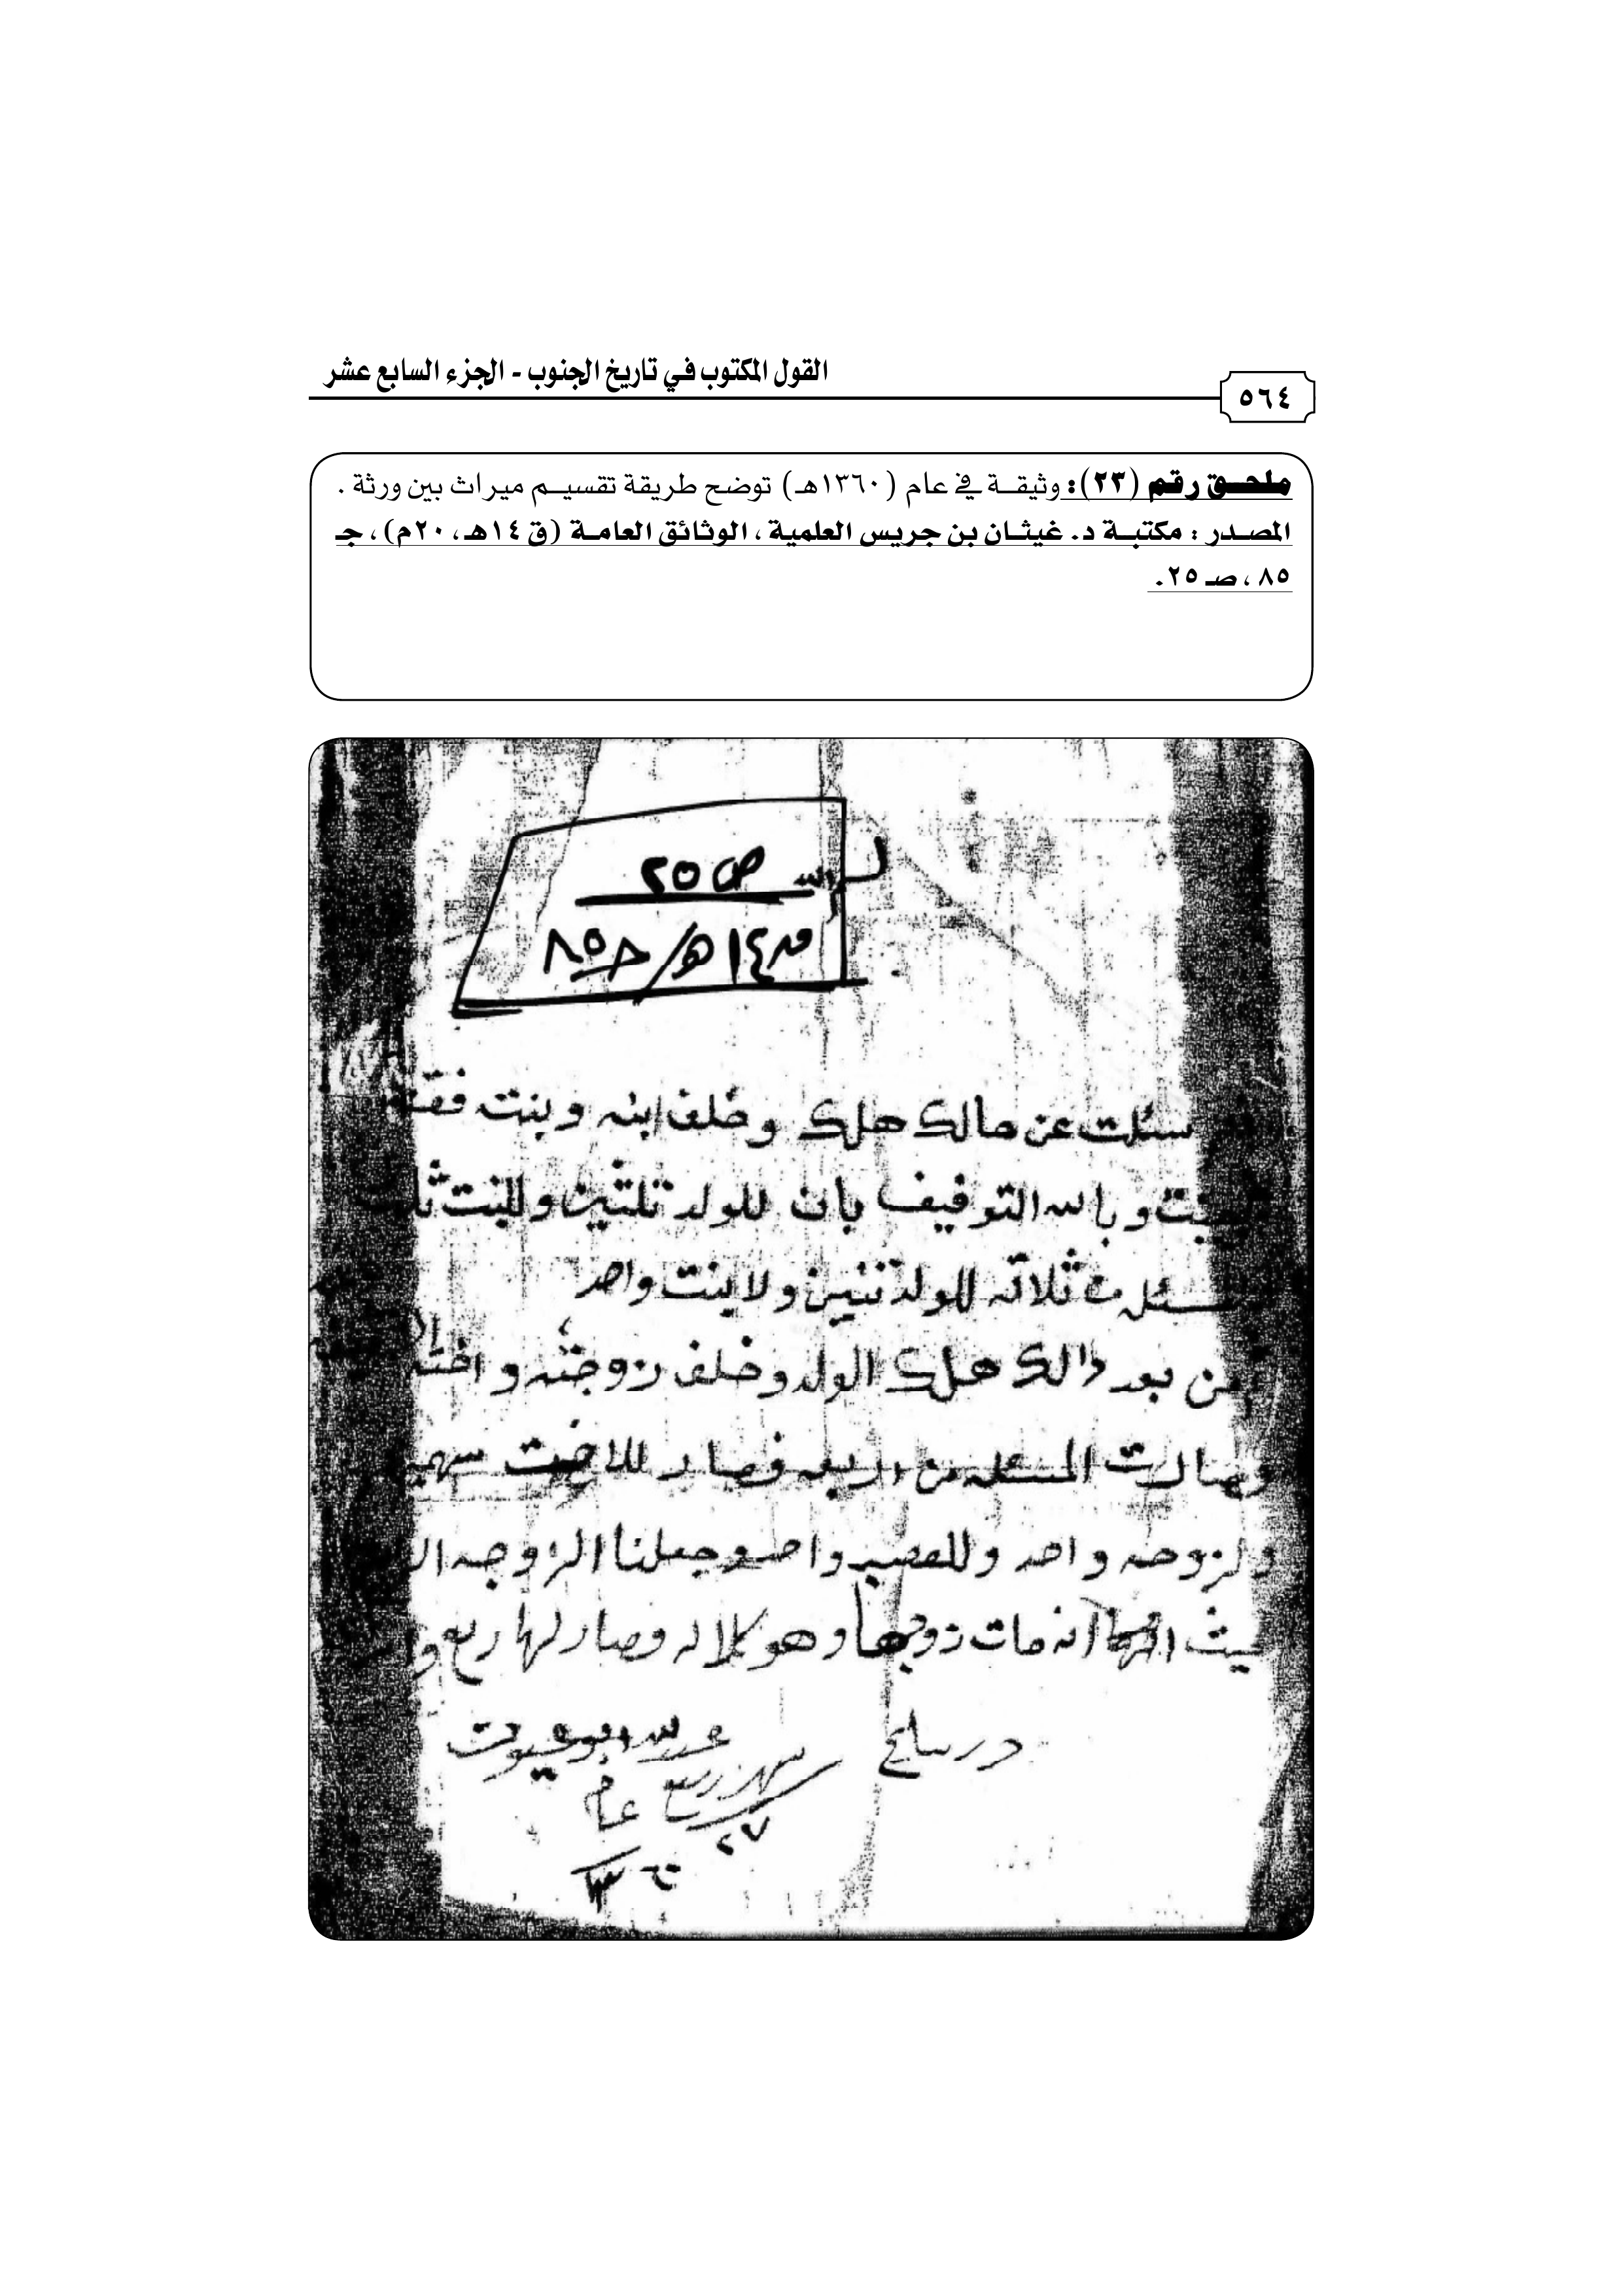 القول المكتوب في تاريخ الجنوب - الجزء السابع عشر
٥٦٤
ملحق رقم (٢٣): وثيقة في عام (١٣٦٠هـ) توضح طريقة تقسيم ميراث بين ورثة .
المصدر : مكتبة د. غيثان بن جريس العلمية ، الوثائق العامة (ق١٤هـ، ٢٠م) ، جـ
٨٥ ، صـ ٢٥.
ص ٢٥
ق ١٤ هـ/ حـ ٨٥
سئلت عن هالك هلك وخلف ابنه وبنت
وبالله التوفيق بان للولد ثلثين وللبنت ثلث
من ثلاثه للولد ثنين ولابنت واحد
من بعد ذالك هلك الولد وخلف زوجته و
وصارت المسئله من اربعه فصار للاخت
ولزوجه واحد وللعصبه واحد وجعلنا الزوجه
حيث انه مات زوجها وهو كلاله وصار لها ربع
عبدالله
ربيع عام
٢٧